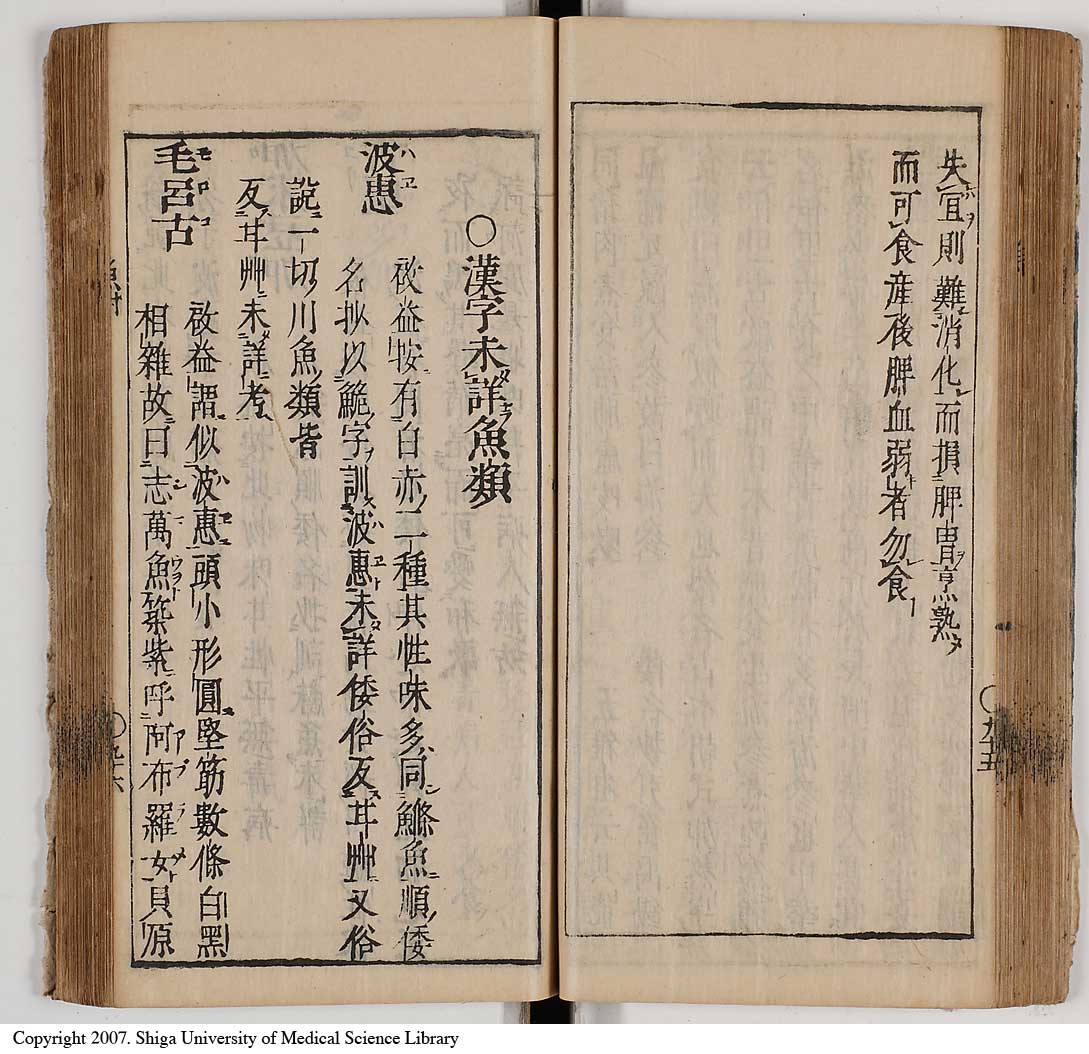 失宜則難消化而損脾胃烹熟
而可食産後脾血弱者勿食
〇九十五
〇漢字未詳魚類
波惠
啟益按有白赤二種其性味多同鰷魚順倭
名抄以鮠字訓波惠未詳倭俗反甘艸又俗
説一切川魚類皆
反甘艸未詳考
毛呂古
啟益謂似波惠頭小形圓堅筋數條白黑
相雜故曰志萬魚筑紫呼阿布羅女貝原
〇九十六
Copyright 2007. Shiga University of Medical Science Library